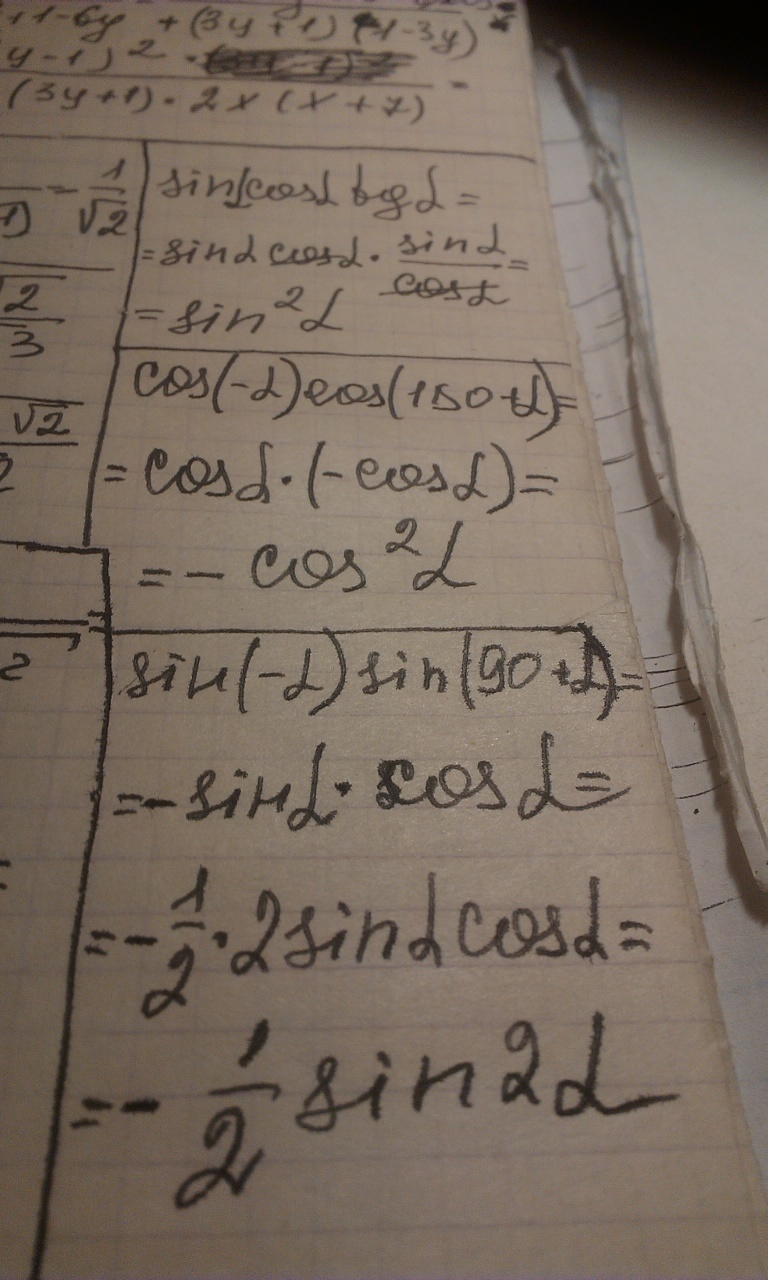 +1-6y + (3y+1) (1-3y)
y-1)²
(3y+1) · 2x (x+7)
- 1/√2
√2/3
√2
2
sinα cosα tgα =
= sinα cosα · sinα/cosα =
= sin²α
cos(-α)cos(180+α)=
= cosα · (-cosα) =
= - cos²α
sin(-α) sin(90+α)=
= - sinα · cosα =
= - 1/2 · 2sinα cosα =
= - 1/2 sin2α